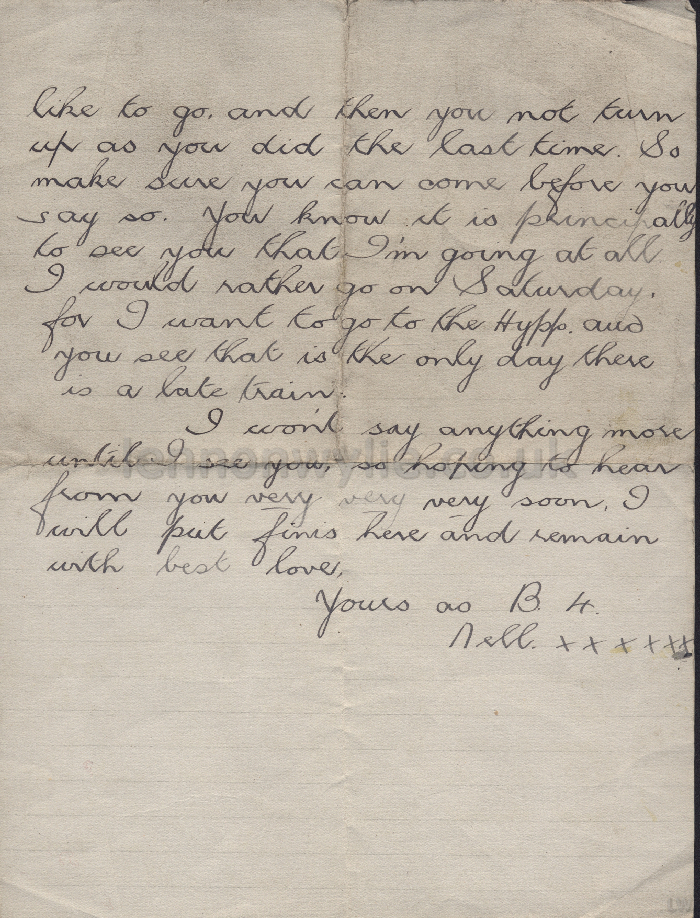 like to go. and then you not turn
up as you did the last time. So
make sure you can come before you
say so. You know it is principally
to see you that I'm going at all
I would rather go on Saturday.
for I want to go to the Hypp. and
you see that is the only day there
is a late train.
I won't say anything more
until I see you, so hoping to hear
from you very very very soon, I
will put finis here and remain
with best love,
Yours as B. 4.
Nell. x x x x x x
lennonwylie.co.uk